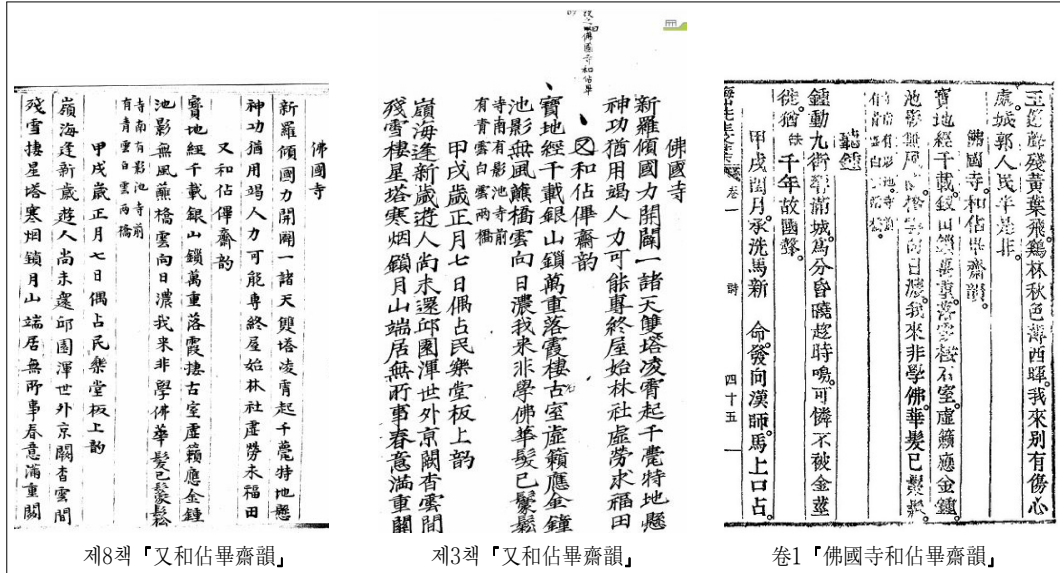 佛國寺
新羅傾國力開闢一諸天雙塔凌霄起千甍特地懸
神功猶用竭人力可能專終屋始林社虛勞未福田
又和佔僤齋韵
寶地經千載銀山鎖萬重落霞捿古室虛籟應金鐘
池影無風蘸橋雲向日濃我来非學佛華髮已鬖鬆
寺南有影池寺前
有青雲白雲兩橋
甲戌歲正月七日偶占民樂堂板上韵
嶺海逢新歲遊人尚未還邱園渾世外京闕杳雲間
殘雪捿星塔寒烟鎖月山端居無所事春意滿重關
제8책『又和佔畢齋韻』
佛國寺和佔畢
佛國寺
新羅傾國力開闢一諸天雙塔凌霄起千甍特地懸
神功猶用竭人力可能專終屋始林社虛勞求福田
又和佔畢齋韵
寶地經千載銀山鎖萬重落霞棲古室虛籟應金鐘
池影無風蘸橋雲向日濃我来非學佛華髮已鬖鬆
寺南有影池寺前
有青雲白雲兩橋
甲戌歲正月七日偶占民樂堂板上韵
嶺海逢新歲遊人尚未還邱園渾世外京闕杳雲間
殘雪樓星塔寒烟鎖月山端居無所事春意滿重關
제3책『又和佔畢齋韻』
殘黃葉飛鷄林秋色薄西暉。我來別有傷心
處。城郭人民半是非。
佛國寺。和佔畢齋韻。
寶地經千載。銀山鎖萬重。落霞棲石室。虛籟應金鐘。
池影無風橋雲向日濃。我來非學佛。華髮已鬖
聽鍾
鍾動九衢滿城。爲分昏曉趁時鳴。可憐不被金莖
徙。猶千年故國聲。
甲戌閏月。承洗馬新 命。發向漢師。馬上口占。
卷一 詩 四十五
卷1『佛國寺和佔畢齋韻』